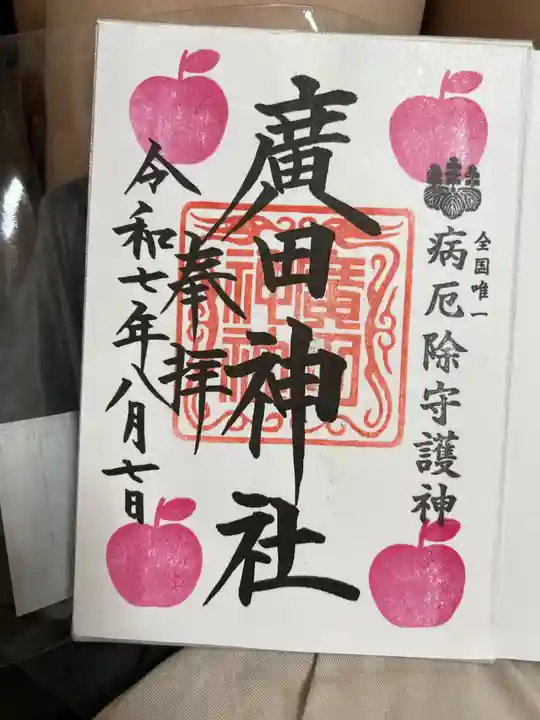 全国唯一
病厄除守護神
廣田神社
奉拝
令和七年八月七日
廣田
神社